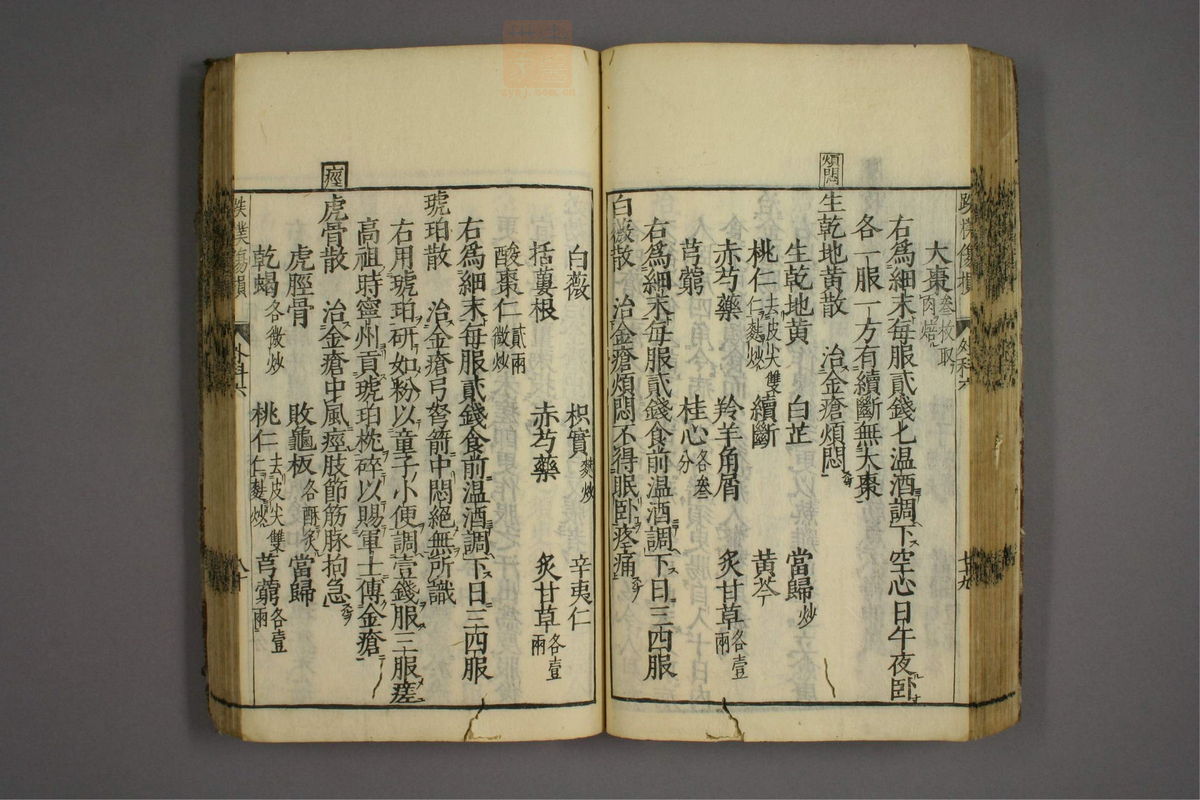 大棗叁枚取肉焙
右爲細末每服貳錢匕温酒調下空心日午夜卧
各一服一方有續斷無大棗
煩悶
生乾地黄散 治金瘡煩悶
生乾地黄 白芷 當歸炒
桃仁去皮尖雙仁麩炒 續斷 黄芩
赤芍藥 羚羊角屑 炙甘草各壹兩
芎藭 桂心各叁分
右爲細末每服貳錢食前温酒調下日三四服
白薇散 治金瘡煩悶不得眠卧疼痛
白薇 枳實麩炒 辛夷仁
括蔞根 赤芍藥 炙甘草各壹兩
酸棗仁貳兩微炒
右爲細末每服貳錢食前温酒調下日三四服
琥珀散 治金瘡弓弩箭中悶絶無所識
右用琥珀研如粉以童子小便調壹錢服三服瘥
高祖時寧州貢琥珀枕碎以賜軍士傅金瘡
痙
虎骨散 治金瘡中風痙肢節筋脉拘急
虎脛骨 敗龜板各酥炙 當歸
乾蝎各微炒 桃仁去皮尖雙仁麩炒 芎藭各壹兩
跌撲傷損 外科六 八十